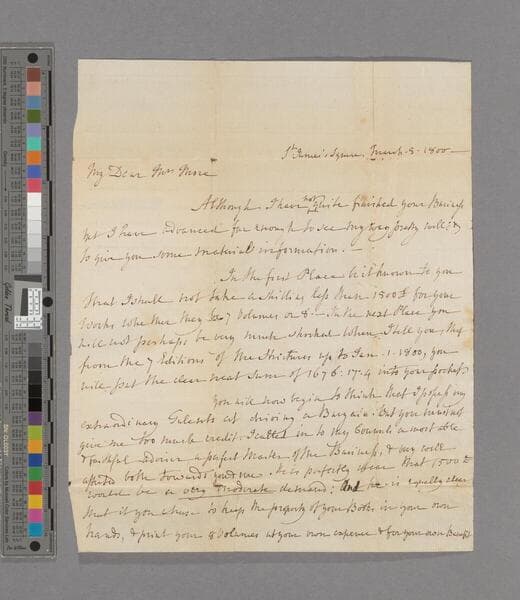 St James's Square, March 8 - 1800
My Dear Mrs More
Although I have not quite finished your Business
yet I have advanced far enough to see my way pretty well, &
to give you some material information. -
In the first Place be it known to you
that I shall not take a shilling less than 1800£ for your
Works whether they be 7 Volumes or 8 - In the next Place you
will not perhaps be very much shocked when I tell you, that
from the 7 Editions of the Strictures up to Jan. 1. 1800, you
will put the clear neat sum of 1676 . 17 . 4 into your pocket
You will now begin to think that I possess my
extraordinary Talents at driving a Bargain. But you must not
give me too much credit. I called in to my Councils a most able
& faithful adviser a perfect Master of the Business, & very well
affected both towards you & me. It is perfectly clear that 1500£
would be a very moderate demand: And it is equally clear
that if you chuse to keep the property of your Books in your own
hands, & print your 8 Volumes at your own expence & for your own Benefit